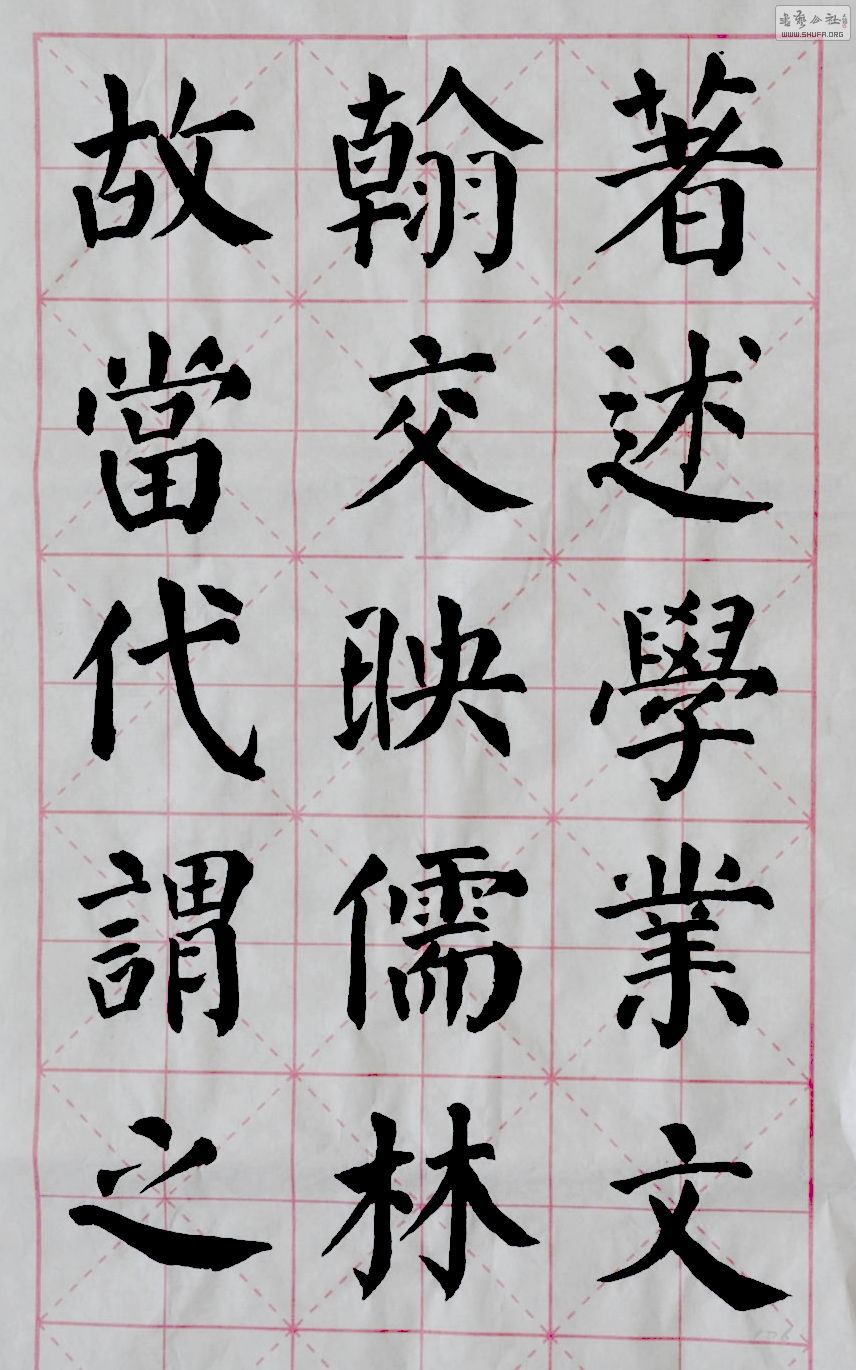 著述學業文
翰交映儒林
故當代謂之
書藝公社
WWW.SHUFA.ORG